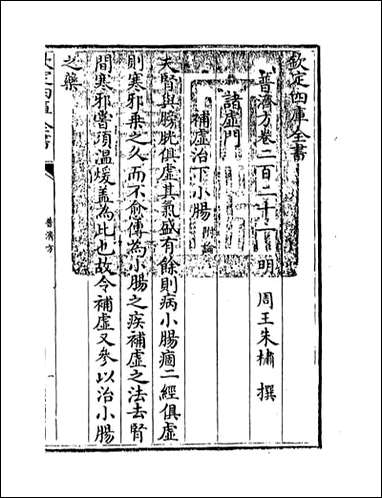 欽定四庫全書
普濟方卷二百二十一 明 周王朱橚 撰
諸虛門
補虛治下小腸附論
夫腎與膀胱俱虛其氣盛有餘則病小腸痼二經俱虛
則寒邪乘之久而不愈傳為小腸之疾補虛之法去腎
間寒邪嘗須溫煖盖為此也故令補虛又參以治小腸
之藥
欽定四庫全書
普濟方